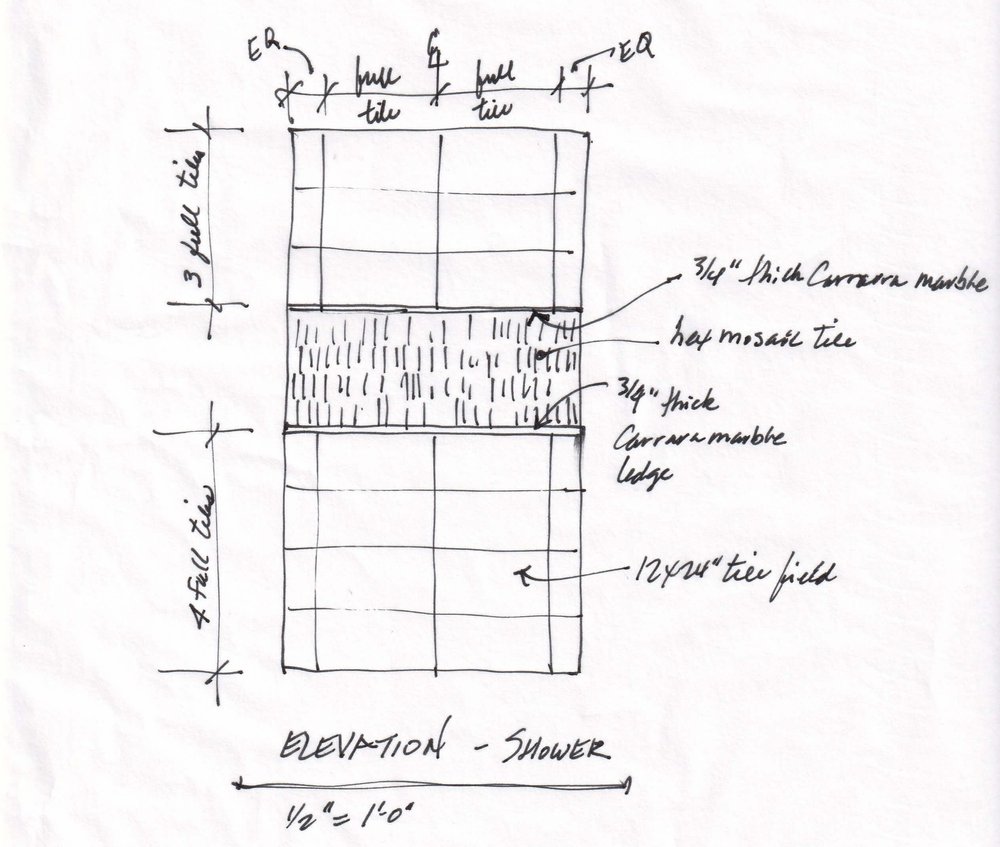 EQ
full
tile
℄
full
tile
EQ
3 full tiles
3/4" thick Carrara marble
hex mosaic tile
3/4" thick
Carrara marble
ledge
4 full tiles
12x24" tile field
ELEVATION - SHOWER
1/2" = 1'-0"